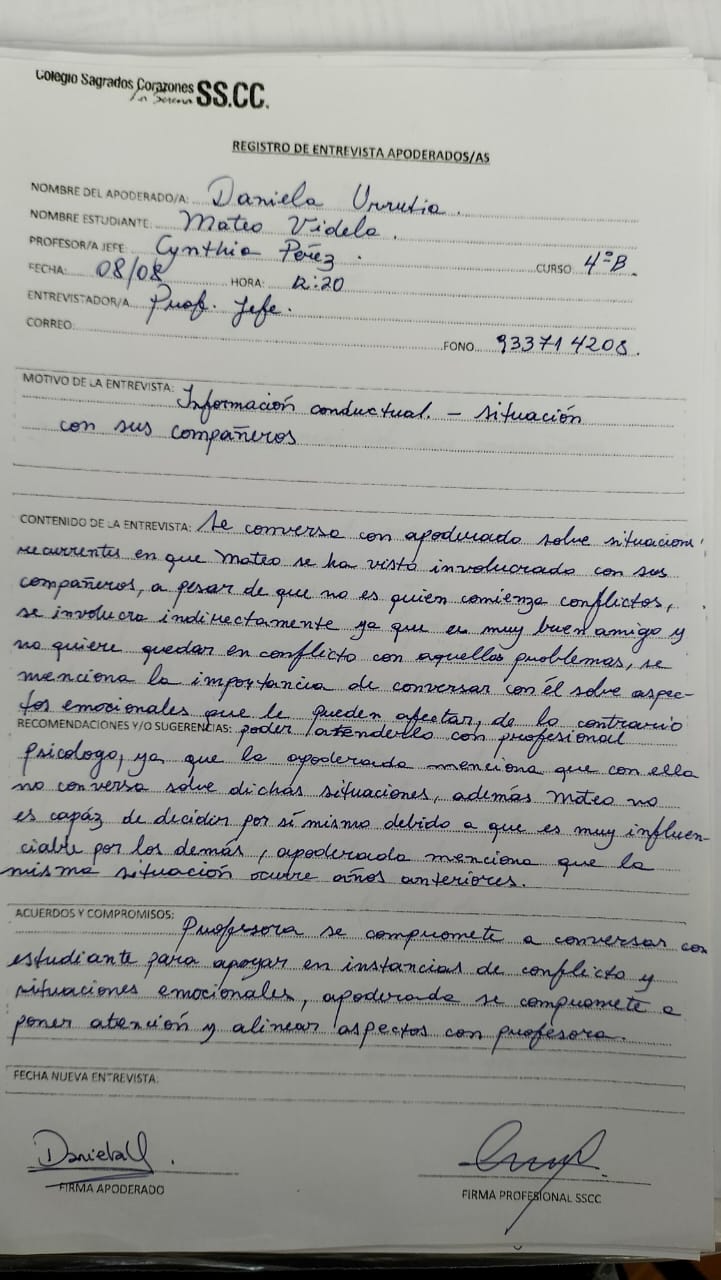 Colegio Sagrados Corazones SS.CC.
La Serena
REGISTRO DE ENTREVISTA APODERADOS/AS
NOMBRE DEL APODERADO/A: Daniela Urrutia.
NOMBRE ESTUDIANTE: Mateo Videla.
PROFESOR/A JEFE: Cynthia Pérez. CURSO 4ºB.
FECHA: 08/08 HORA: 12:20
ENTREVISTADOR/A Prof. Jefe.
CORREO: FONO 933714208.
MOTIVO DE LA ENTREVISTA: Información conductual. – situación
con sus compañeros
CONTENIDO DE LA ENTREVISTA: Se conversa con apoderado sobre situacion
recurrentes en que Mateo se ha visto involucrado con sus
compañeros, a pesar de que no es quien comienza conflictos,
se involucra indirectamente ya que es muy buen amigo y
no quiere quedar en conflicto con aquellos problemas, se
menciona la importancia de conversar con él sobre aspec-
tos emocionales que le pueden afectar, de lo contrario
RECOMENDACIONES Y/O SUGERENCIAS: poder atenderlo con profesional
psicologo, ya que la apoderada menciona que con ella
no conversa sobre dichas situaciones, además Mateo no
es capáz de decidir por sí mismo debido a que es muy influen-
ciable por los demás, apoderada menciona que la
misma situación ocurre años anteriores.
ACUERDOS Y COMPROMISOS: Profesora se compromete a conversar con
estudiante para apoyar en instancias de conflicto y
situaciones emocionales, apoderada se compromete a
poner atención y alinear aspectos con profesora.
FECHA NUEVA ENTREVISTA:
DanielaU.
FIRMA APODERADO
FIRMA PROFESIONAL SSCC